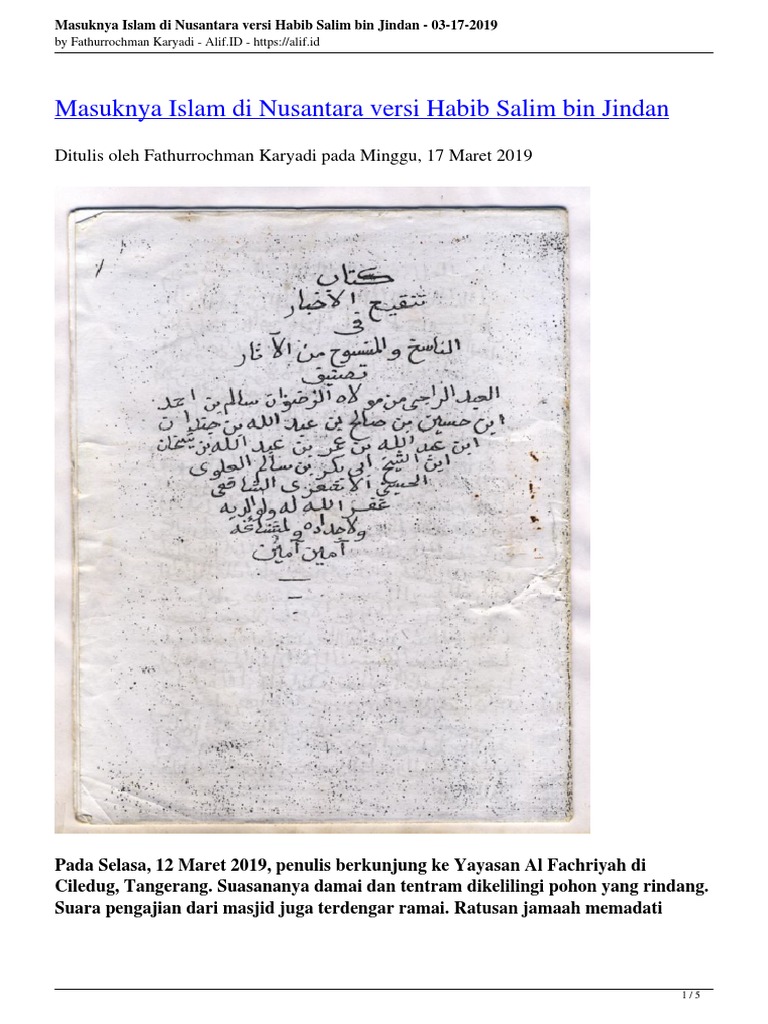 Masuknya Islam di Nusantara versi Habib Salim bin Jindan - 03-17-2019
by Fathurrochman Karyadi - Alif.ID - https://alif.id
Masuknya Islam di Nusantara versi Habib Salim bin Jindan
Ditulis oleh Fathurrochman Karyadi pada Minggu, 17 Maret 2019
كتاب
تنقيح الأخبار
في
الناسخ والمنسوخ من الآثار
تصنيف
العبد الراجي من مولاه الرضوان سالم بن احمد
ابن حسين بن صالح بن عبد الله بن جندان
ابن عبد الله بن عمر بن عبد الله بن شيخان
ابن الشيخ ابي بكر بن سالم العلوي
الحسيني الاشعري الشافعي
غفر الله له ولوالديه
ولاجداده ولمشائخه
آمين آمين
Pada Selasa, 12 Maret 2019, penulis berkunjung ke Yayasan Al Fachriyah di
Ciledug, Tangerang. Suasananya damai dan tentram dikelilingi pohon yang rindang.
Suara pengajian dari masjid juga terdengar ramai. Ratusan jamaah memadati
1 / 5